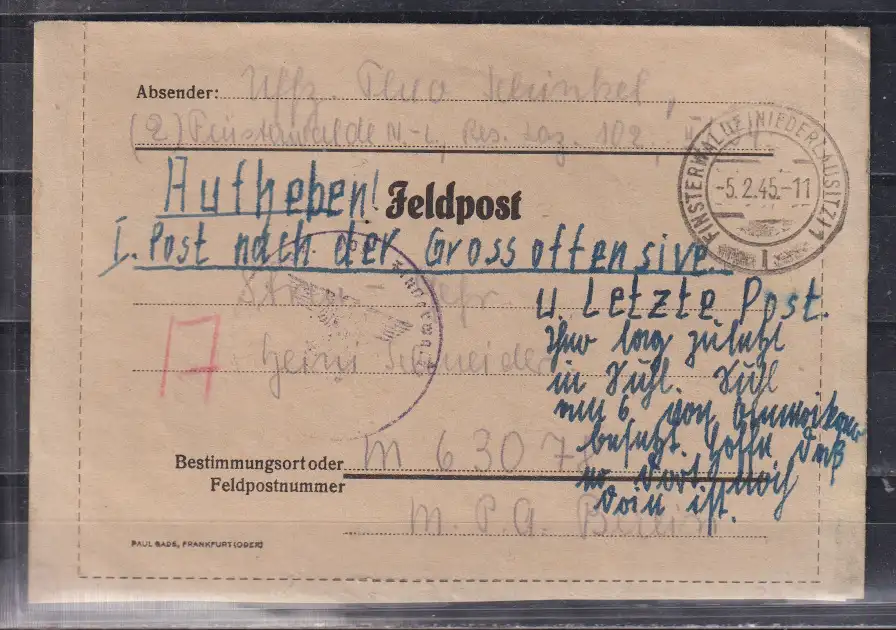 Absender: Uffz. Thuo Schinkel,
(2) Finsterwalde N-L, Res. Laz. 102,
FINSTERWALDE (NIEDERLAUSITZ) 1
-5.2.45.-11
Aufheben!
Feldpost
I. Post nach der Grossoffensive.
u. Letzte Post.
Gefr.
Heini Schneider
Thuo lag zuletzt
in Suhl. Suhl
von
besetzt. Hoffe daß
er dort noch
drin ist.
Bestimmungsort oder
Feldpostnummer
M 6307
M. P. A. Berlin
PAUL BADE, FRANKFURT (ODER)